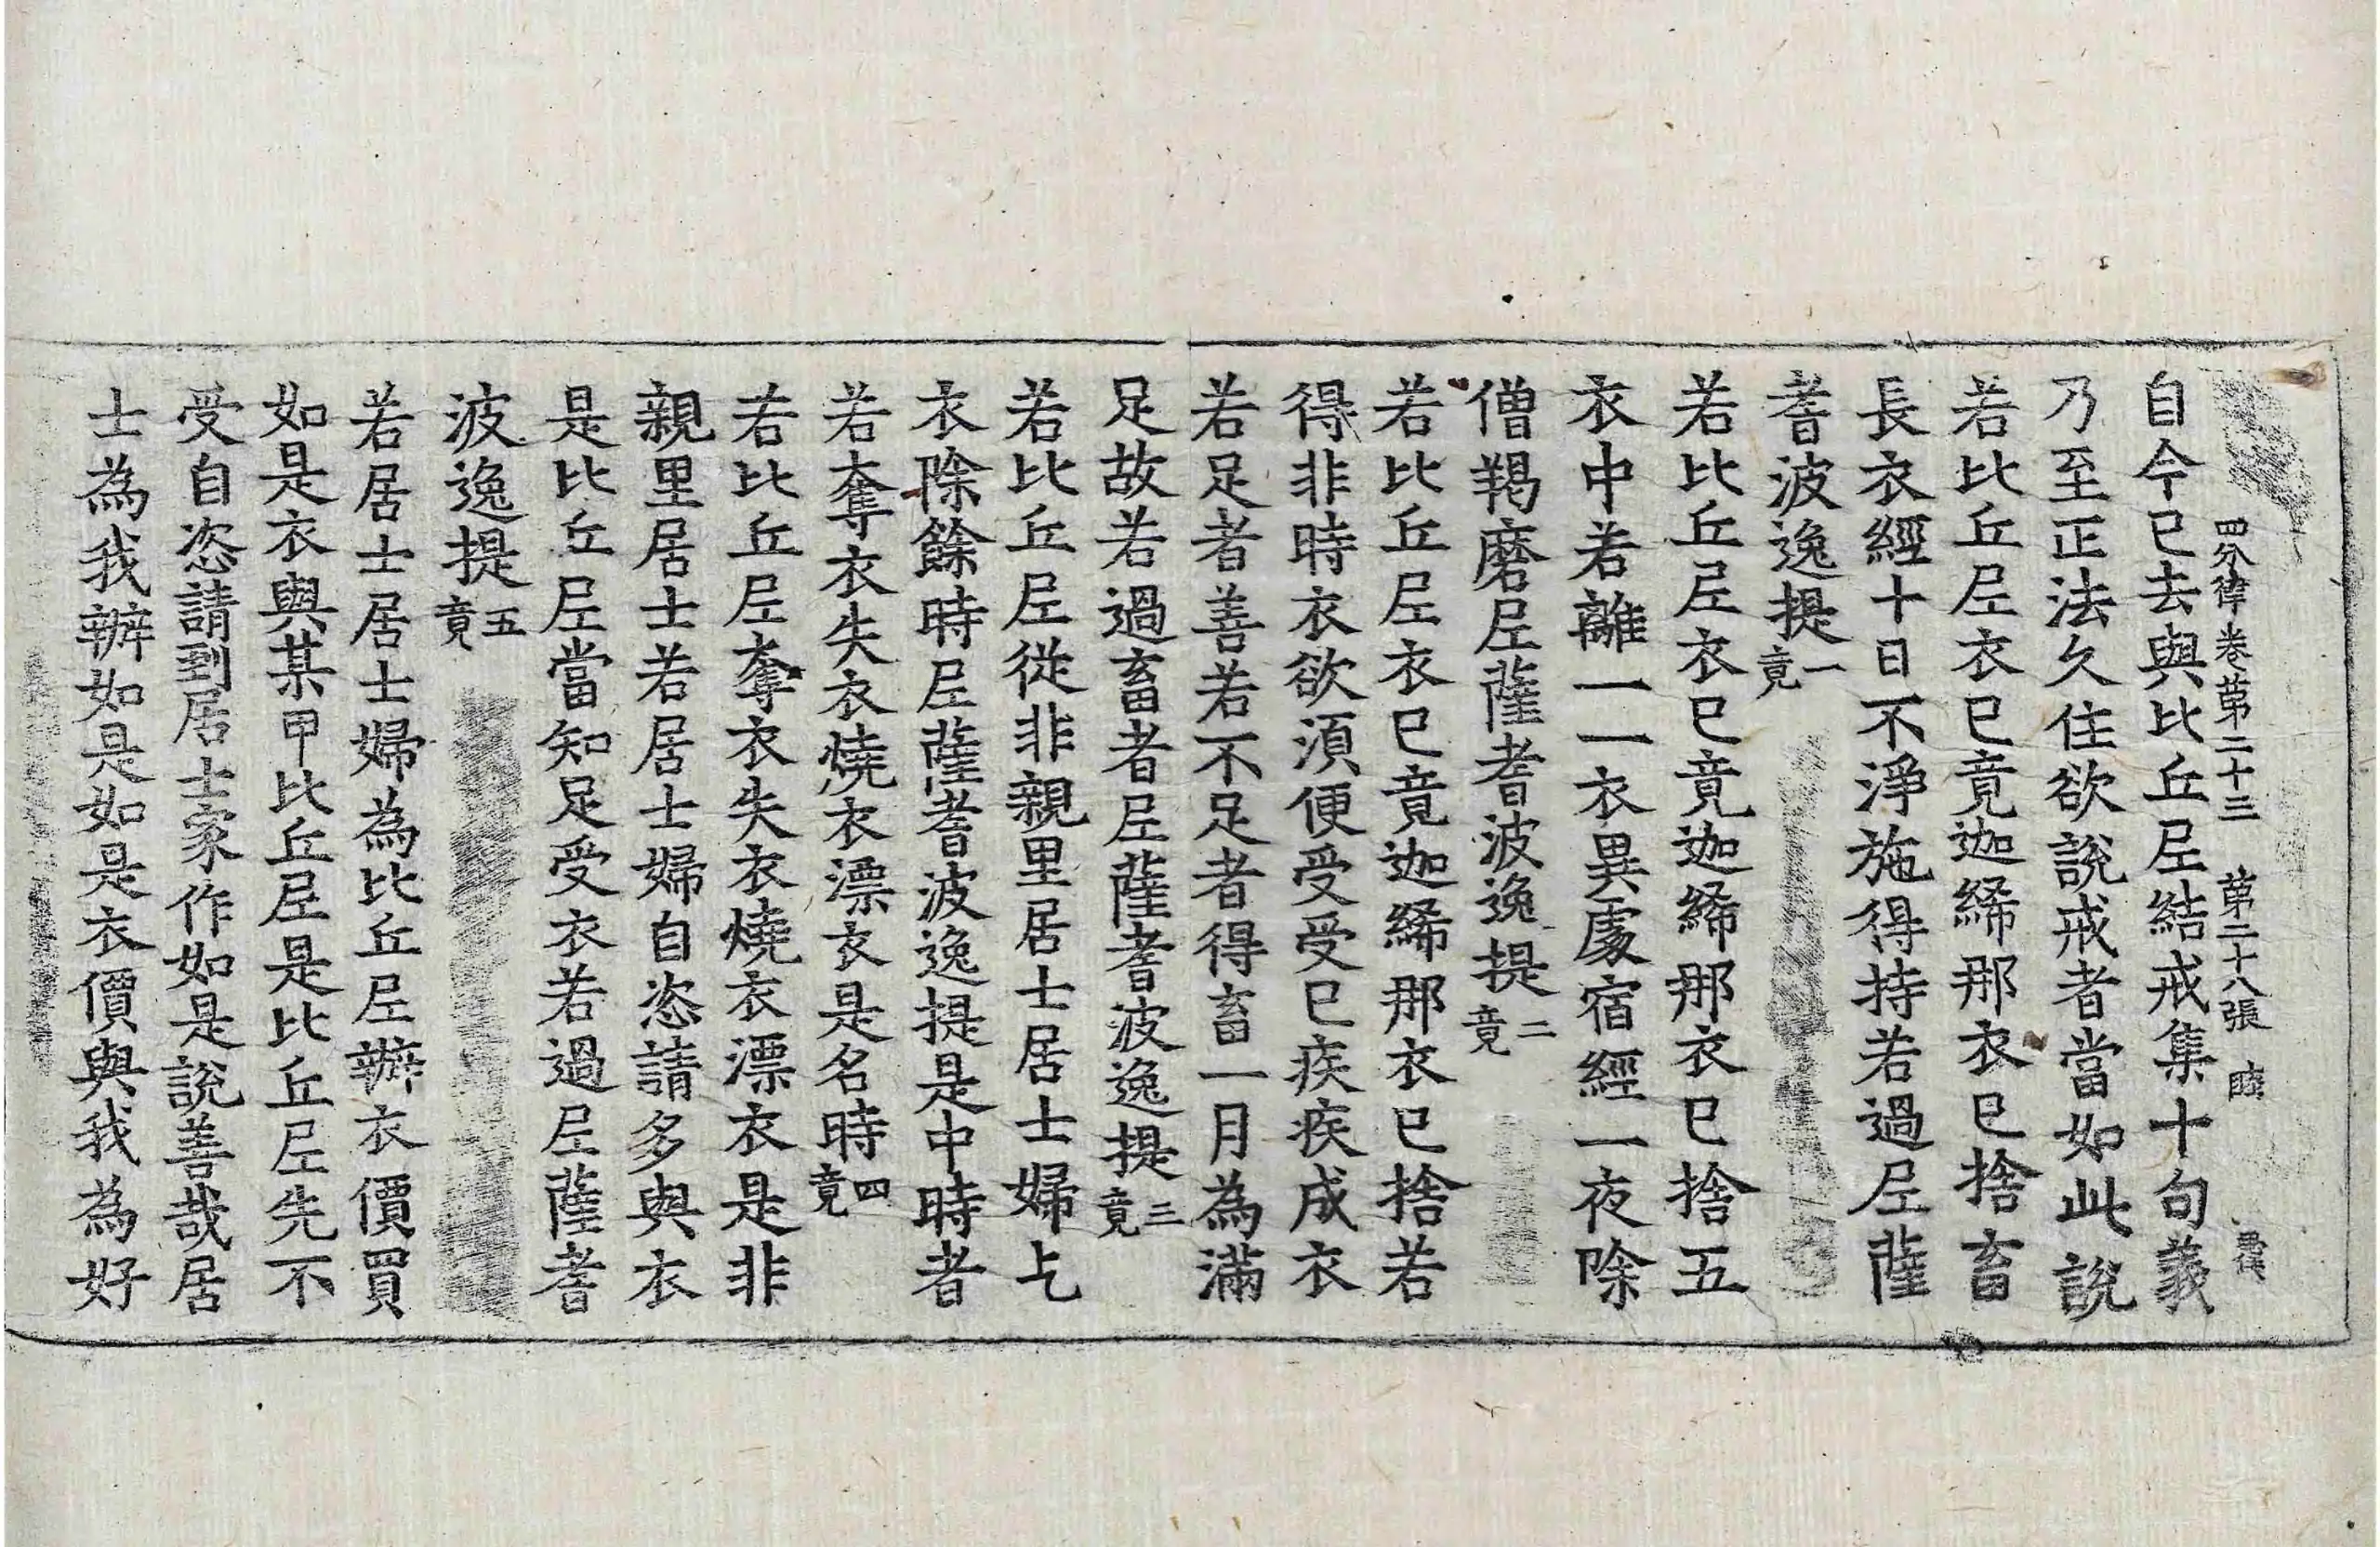 四分律卷苐二十三　苐二十八張　睦
自今已去與比丘尼結戒集十句義
乃至正法久住欲說戒者當如此說
若比丘尼衣已竟迦絺那衣已捨畜
長衣經十日不淨施得持若過尼薩
耆波逸提一竟
若比丘尼衣已竟迦絺那衣已捨五
衣中若離一一衣異處宿經一夜除
僧羯磨尼薩耆波逸提二竟
若比丘尼衣已竟迦絺那衣已捨若
得非時衣欲湏便受受已疾疾成衣
若足者善若不足者得畜一月為滿
足故若過畜者尼薩耆波逸提三竟
若比丘尼從非親里居士居士婦乞
衣除餘時尼薩耆波逸提是中時者
若奪衣失衣燒衣漂衣是名時四竟
若比丘尼奪衣失衣燒衣漂衣是非
親里居士若居士婦自恣請多與衣
是比丘尼當知足受衣若過尼薩耆
波逸提五竟
若居士居士婦為比丘尼辦衣價買
如是衣與某甲比丘尼是比丘尼先不
受自恣請到居士家作如是說善哉居
士為我辦如是如是衣價與我為好